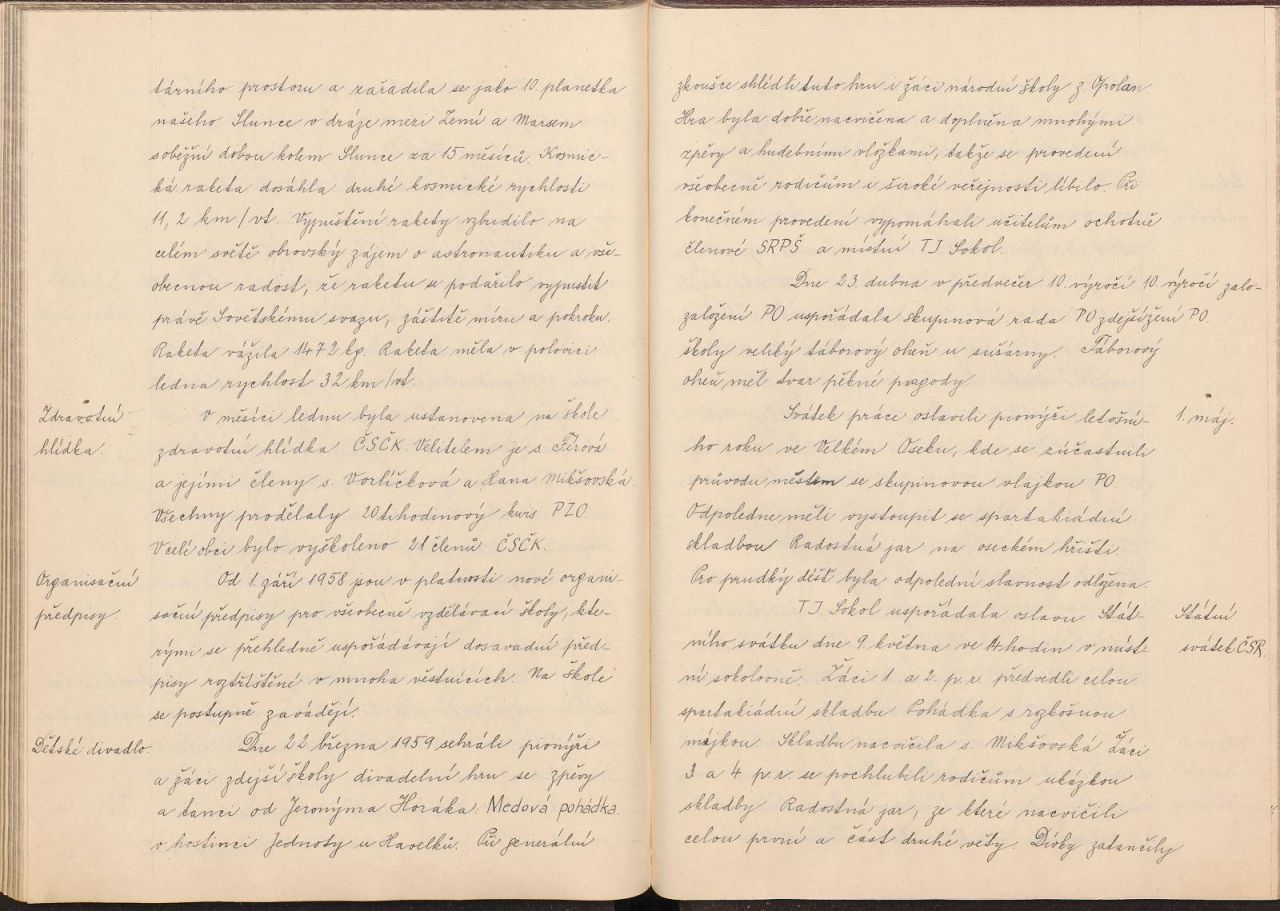 tárního prostoru a zařadila se jako 10. planetka
našeho Slunce v dráze mezi Zemí a Marsem
s oběžní dobou kolem Slunce za 15 měsíců. Kosmic-
ká raketa dosáhla druhé kosmické rychlosti
11,2 km/vt. Vypuštění rakety vzbudilo na
celém světě obrovský zájem o astronautiku a vše-
obecnou radost, že raketu se podařilo vypustit
právě Sovětskému svazu, záštitě míru a pokroku.
Raketa vážila 1472 kg. Raketa měla v polovici
ledna rychlost 32 km/vt.
Zdravotní
hlídka.
V měsíci lednu byla ustanovena na škole
zdravotní hlídka ČSČK. Velitelem je s. Férová
a jejími členy s. Vorlíčková a Hana Mikšovská.
Všechny prodělaly 20tihodinový kurs PZO.
V celé obci bylo vyškoleno 21 členů ČSČK.
Organisační
předpisy.
Od 1. září 1958 jsou v platnosti nové organi-
sační předpisy pro všeobecně vzdělávací školy, kte-
rými se přehledně uspořádávají dosavadní před-
pisy roztříštěné v mnoha věstnících. Na škole
se postupně zavádějí.
Dětské divadlo.
Dne 22. března 1959 sehráli pionýři
a žáci zdejší školy divadelní hru se zpěvy
a tanci od Jeronýma Horáka. Medová pohádka.
v hostinci Jednoty u Havelků. Při generální
zkoušce shlédli tuto hru i žáci národní školy z Opolan.
Hra byla dobře nacvičena a doplněna mnohými
zpěvy a hudebními vložkami, takže se provedení
všeobecně rodičům i široké veřejnosti líbilo. Při
konečném provedení vypomáhali učitelům ochotně
členové SRPŠ a místní TJ Sokol.
Dne 23. dubna v předvečer 10. výročí 10. výročí zalo-
založení PO uspořádala skupinová rada PO zdejší žení PO
školy veliký táborový oheň u sušárny. Táborový
oheň měl tvar pěkné pagody.
Svátek práce oslavili pionýři letošní-
ho roku ve Velkém Oseku, kde se zúčastnili
průvodu městem se skupinovou vlajkou PO.
Odpoledne měli vystoupit se spartakiádní
skladbou Radostná jar na oseckém hřišti.
Pro prudký déšť byla odpolední slavnost odložena.
1. máj.
TJ Sokol uspořádala oslavu Stát-
ního svátku dne 9. května ve 14 hodin v míst-
ní sokolovně. Žáci 1 a 2. p. r. předvedli celou
spartakiádní skladbu Pohádka s rozkošnou
májkou. Skladbu nacvičila s. Mikšovská. Žáci
3 a 4 p. r. se pochlubili rodičům ukázkou
skladby Radostná jar, ze které nacvičili
celou první a část druhé věty. Dívky zatančily
Státní
svátek ČSR.